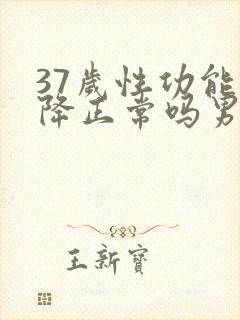 37歲性功能
降正常吗男
王新寶